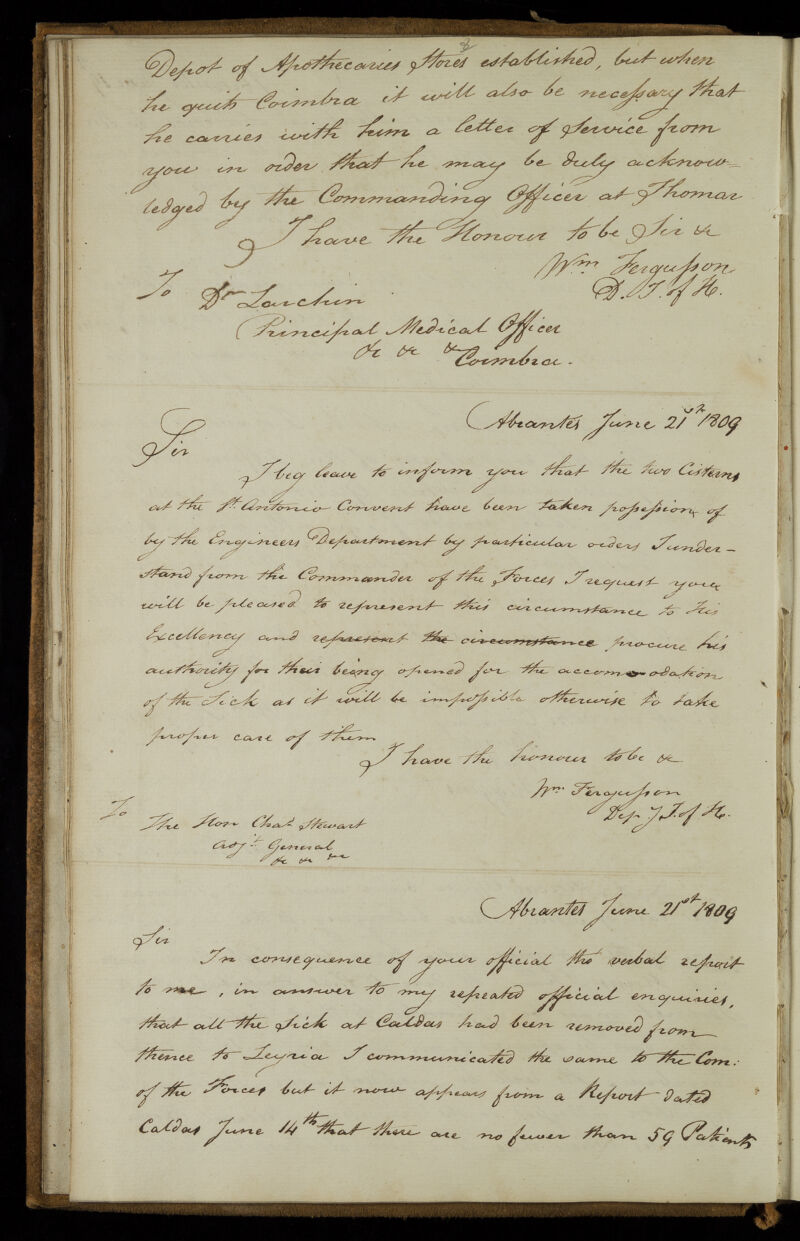 Depot of Apothecaries Stores established, but when
he quits Coimbra it will also be necessary that
he carries with him a letter of Service from
you in order that he may be duly acknow=
ledged by the Commanding Officer at Thomar
I have the Honour to be Sir &c
Wm. Fergusson
D. I. of H.
To Dr Larchin
Principal Medical Officer
&c &c &c
Coimbra.
Abrantes June 21st 1809
Sir
I beg leave to inform you that the two Cisterns
at the St. Antonio Convent have been taken possession of
by the Engineers Department by particular orders I under-
stand from the Commander of the Forces I request you
will be pleased to represent this circumstance to His
Excellency and represent the circumstance procure his
authority for their being opened for the accomodation
of the Sick as it will be impossible otherwise to take
proper care of them
I have the honour to be &c
Wm Fergusson
Dep. I. of H.
To
The Hon Chas. Stewart
Adjt. General
&c &c &c
Abrantes June 21st 1809
Sir
In consequence of your official tho verbal report
to me, in answer to my repeated official enquiries,
that all the Sick at Caldas had been removed from
thence to Leyria I communicated the same to the Com:
of the Forces but it now appears from a Report dated
Caldas June 14th that there are no fewer than 59 Patients